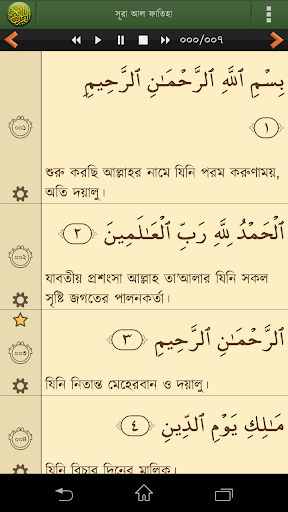 সূরা আল ফাতিহা
০০০/০০৭
بِسْمِ ٱللَّهِ ٱلرَّحْمَـٰنِ ٱلرَّحِيمِ
١
০০১
শুরু করছি আল্লাহর নামে যিনি পরম করুণাময়,
অতি দয়ালু।
ٱلْحَمْدُ لِلَّهِ رَبِّ ٱلْعَـٰلَمِينَ ٢
০০২
যাবতীয় প্রশংসা আল্লাহ তা'আলার যিনি সকল
সৃষ্টি জগতের পালনকর্তা।
ٱلرَّحْمَـٰنِ ٱلرَّحِيمِ ٣
০০৩
যিনি নিতান্ত মেহেরবান ও দয়ালু।
مَـٰلِكِ يَوْمِ ٱلدِّينِ ٤
০০৪
যিনি বিচার দিনের মালিক।